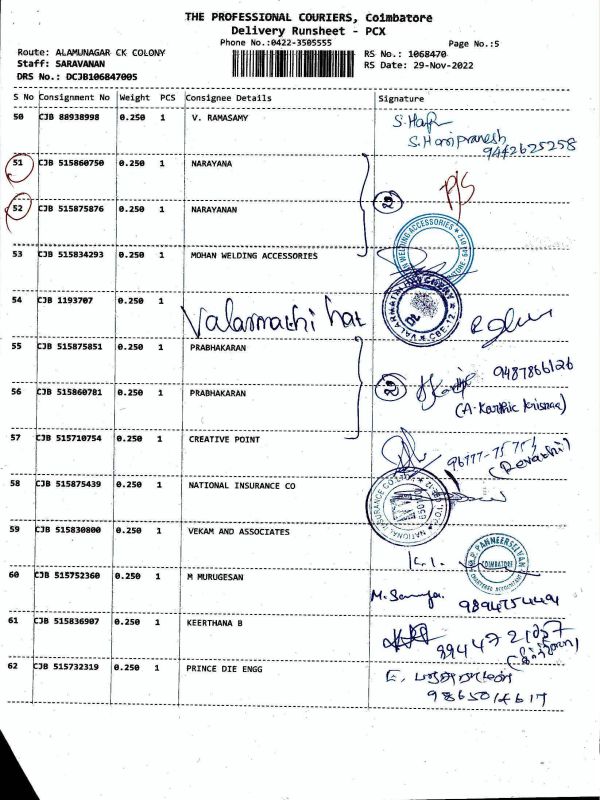 THE PROFESSIONAL COURIERS, Coimbatore
Delivery Runsheet - PCX
Phone No.:0422-3505555
Page No.:5
Route: ALAMUNAGAR CK COLONY
RS No.: 1068470
Staff: SARAVANAN
RS Date: 29-Nov-2022
DRS No.: DCJB106847005
S No Consignment No Weight PCS Consignee Details Signature
50 CJB 88938998 0.250 1 V. RAMASAMY
S. Hari pranesh
9442625258
51 CJB 515860750 0.250 1 NARAYANA
52 CJB 515875876 0.250 1 NARAYANAN
53 CJB 515834293 0.250 1 MOHAN WELDING ACCESSORIES
WELDING ACCESSORIES
54 CJB 1193707 0.250 1
Valarmathi hat
VALARMATHI
CBE-12
55 CJB 515875851 0.250 1 PRABHAKARAN
9487866126
56 CJB 515860781 0.250 1 PRABHAKARAN
(A. Karthic Krisnaa)
57 CJB 515710754 0.250 1 CREATIVE POINT
(Revathi)
58 CJB 515875439 0.250 1 NATIONAL INSURANCE CO
NATIONAL INSURANCE CO
59 CJB 515830800 0.250 1 VEKAM AND ASSOCIATES
PANNEERSELVAN
COIMBATORE
CHARTERED ACCOUNTANT
60 CJB 515752360 0.250 1 M MURUGESAN
61 CJB 515836907 0.250 1 KEERTHANA B
62 CJB 515732319 0.250 1 PRINCE DIE ENGG